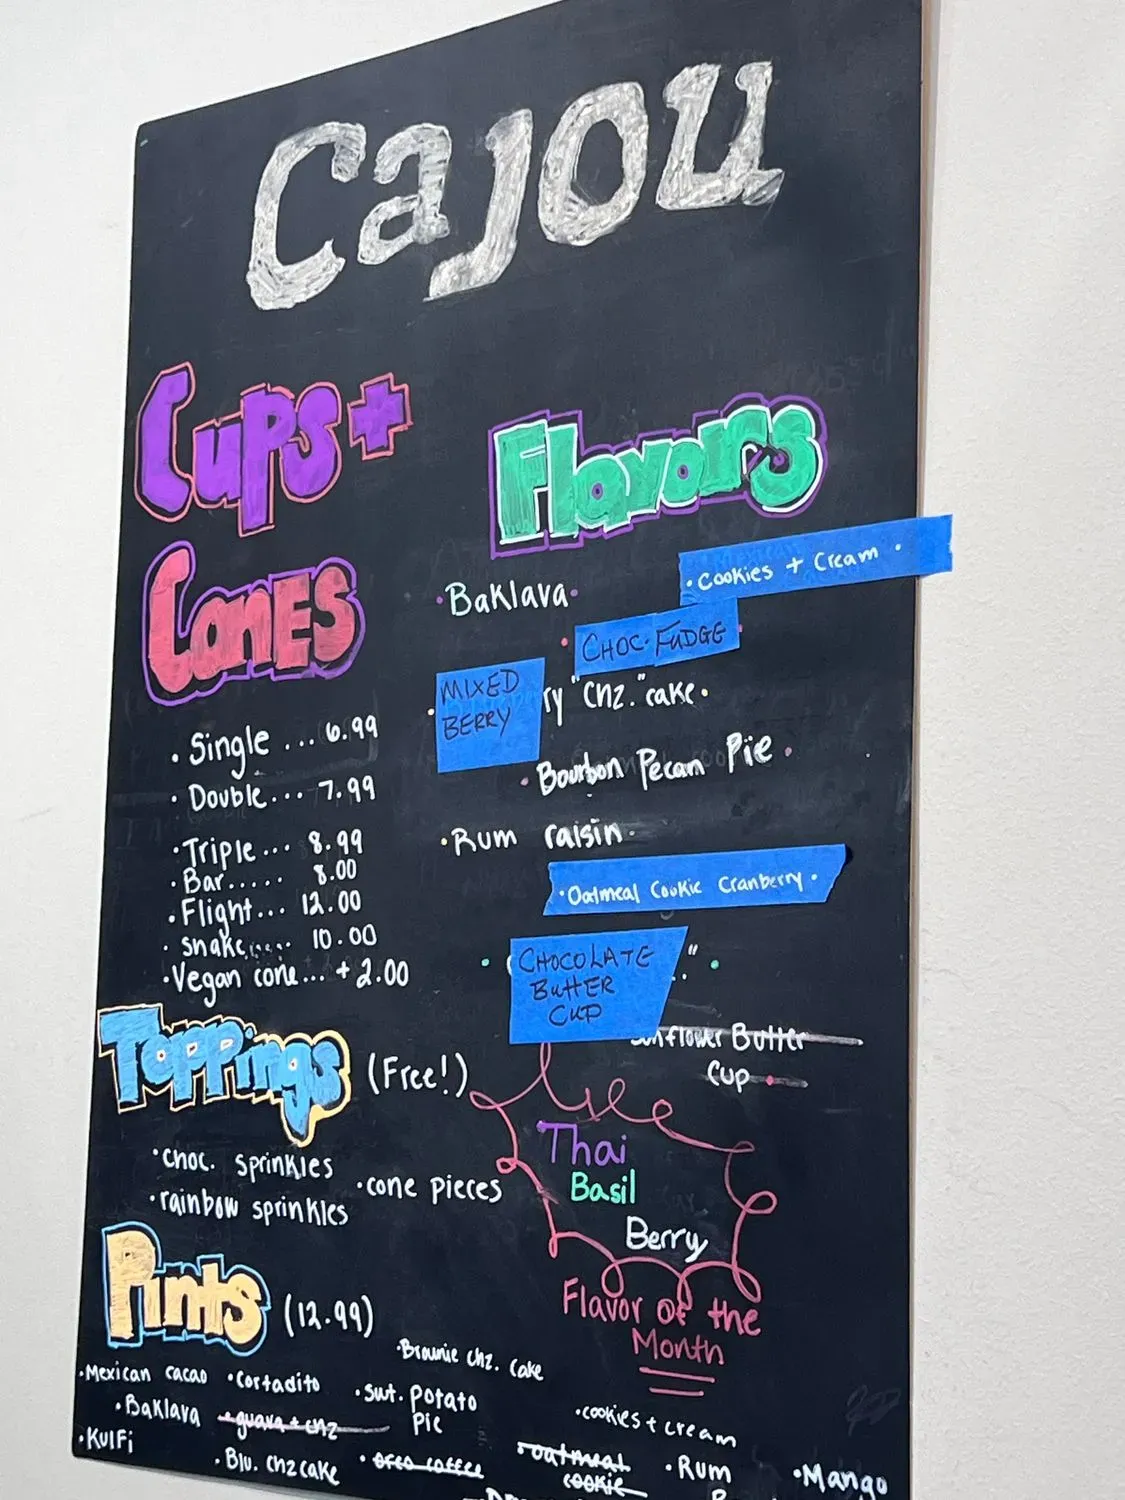 Cajou
Cups +
Cones
· Single ... 6.99
· Double... 7.99
· Triple... 8.99
· Bar..... 8.00
· Flight... 12.00
· snake....... 10.00
· Vegan cone... + 2.00
Toppings (Free!)
· choc. sprinkles
· rainbow sprinkles
· cone pieces
Pints (12.99)
Flavors
· Baklava ·
· Cookies + Cream ·
· CHOC. FUDGE ·
· MIXED
BERRY
ry "Chz." cake ·
· Bourbon Pecan Pie ·
· Rum raisin ·
· Oatmeal Cookie Cranberry ·
· CHOCOLATE
BUTTER
CUP
.." ·
Butter
Cup ·
Thai
Basil
Berry
Flavor of the
Month
· Brownie chz. cake
· Mexican cacao
· Cortadito
· swt. potato
pie
· Baklava
· guava + chz
· cookies + cream
· Kulfi
· Blu. chzcake
· oreo coffee
· oatmeal
cookie
· Rum
· Mango